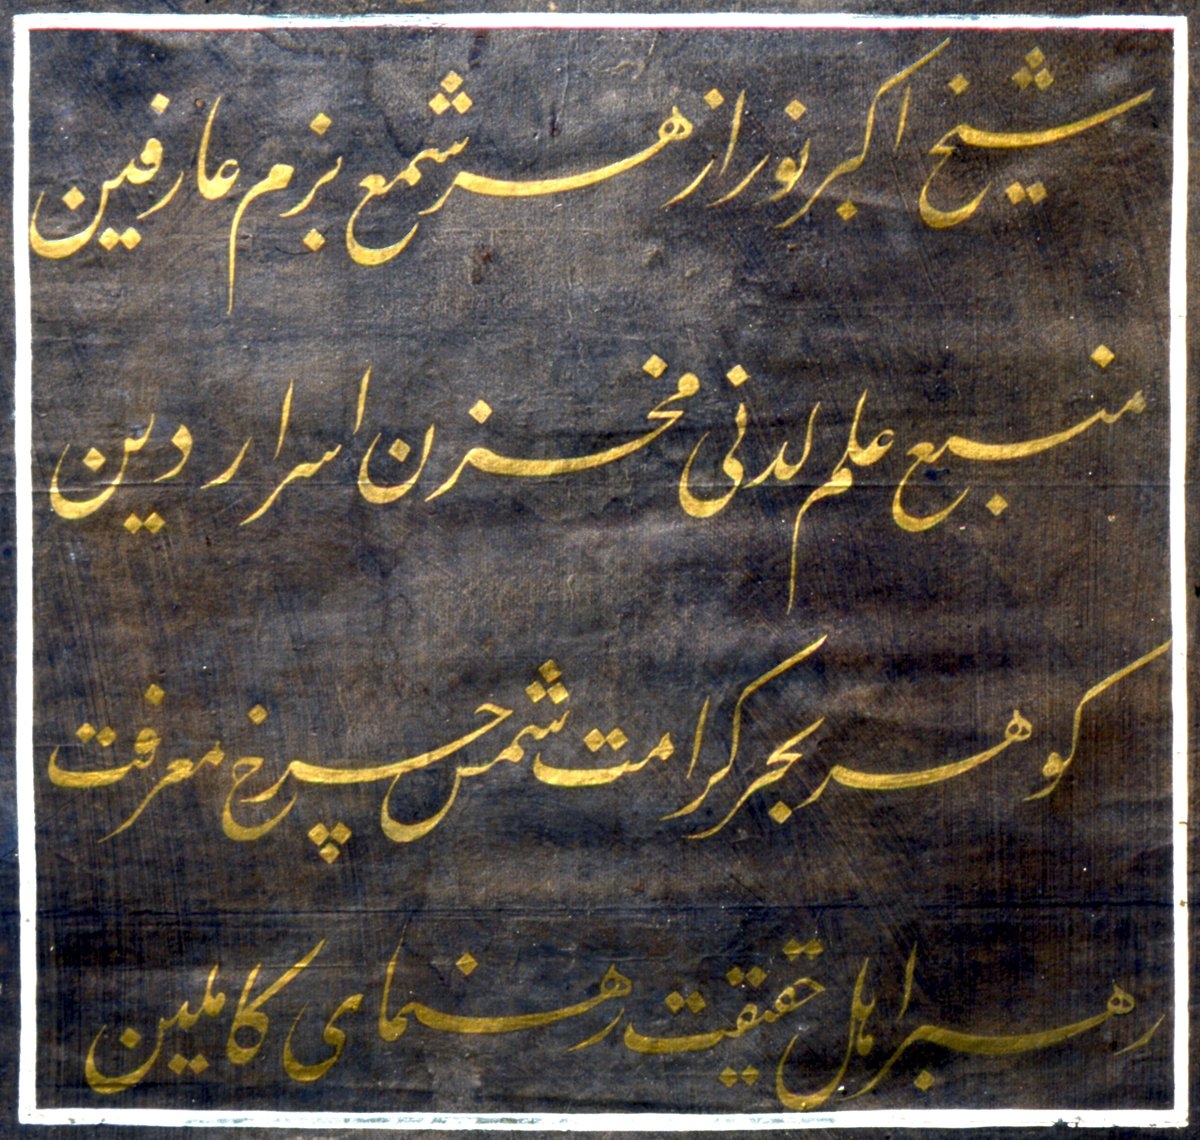 شیخ اکبر نور ازهر شمع بزم عارفین
منبع علم لدنی مخزن اسرار دین
کوهر بحر کرامت شمس چرخ معرفت
رهبر اهل حقیقت رهنمای کاملین